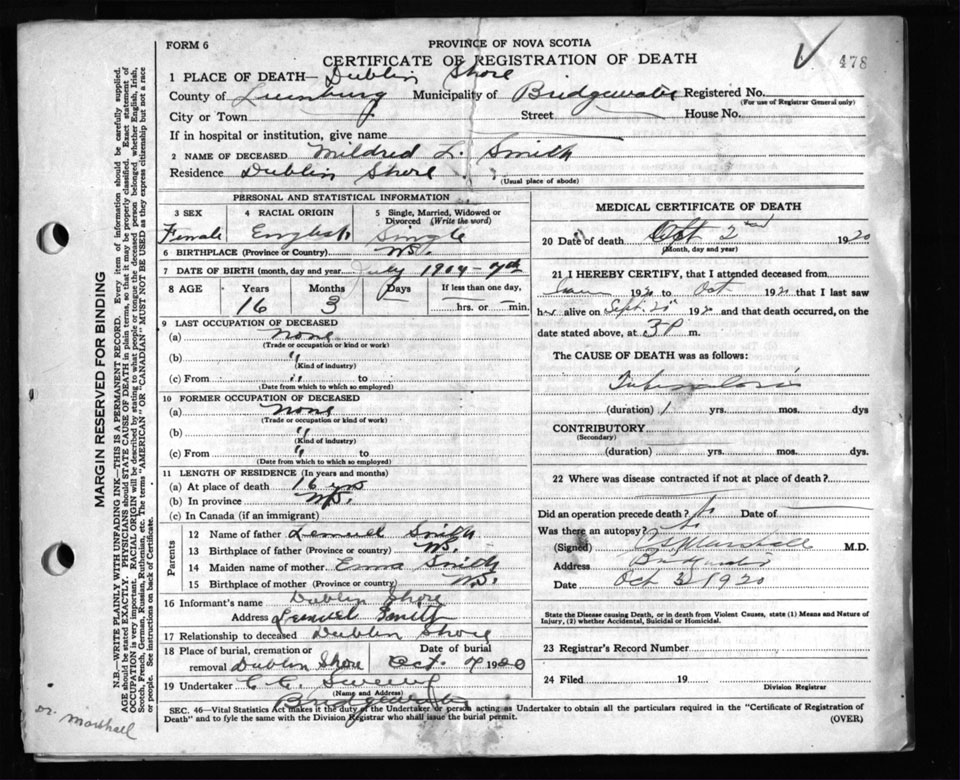 FORM 6
PROVINCE OF NOVA SCOTIA
CERTIFICATE OF REGISTRATION OF DEATH
478
1 PLACE OF DEATH— Dublin Shore
County of Lunenburg Municipality of Bridgewater Registered No.
(For use of Registrar General only)
City or Town Street House No.
If in hospital or institution, give name
2 NAME OF DECEASED Mildred L. Smith
Residence Dublin Shore
(Usual place of abode)
PERSONAL AND STATISTICAL INFORMATION
3 SEX 4 RACIAL ORIGIN 5 Single, Married, Widowed or Divorced (Write the word)
Female English Single
6 BIRTHPLACE (Province or Country) NS.
7 DATE OF BIRTH (month, day and year July 1904 - 7th
8 AGE Years Months Days If less than one day,
16 3 hrs. or min.
9 LAST OCCUPATION OF DECEASED
(a) none
(Trade or occupation or kind of work)
(b) "
(Kind of industry)
(c) From " to
(Date from which to which so employed)
10 FORMER OCCUPATION OF DECEASED
(a) none
(Trade or occupation or kind of work)
(b) "
(Kind of industry)
(c) From " to
(Date from which to which so employed)
11 LENGTH OF RESIDENCE (In years and months)
(a) At place of death 16 yrs
(b) In province NS.
(c) In Canada (if an immigrant)
Parents
12 Name of father Lemuel Smith
13 Birthplace of father (Province or country) NS.
14 Maiden name of mother Emma Smith
15 Birthplace of mother (Province or country) NS.
16 Informant's name Dublin Shore
Address Lemuel Smith
17 Relationship to deceased Dublin Shore
18 Place of burial, cremation or removal Dublin Shore Date of burial Oct. 7 1920
19 Undertaker C. C.
(Name and Address)
Bridgewater
MEDICAL CERTIFICATE OF DEATH
20 Date of death Oct 2nd 1920
(Month, day and year)
21 I HEREBY CERTIFY, that I attended deceased from
1920 to Oct 1920 that I last saw
her alive on Sept. 1920 and that death occurred, on the
date stated above, at 3 P m.
The CAUSE OF DEATH was as follows:
Tuberculosis
(duration) 1 yrs. mos. dys
CONTRIBUTORY
(Secondary)
(duration) yrs. mos. dys.
22 Where was disease contracted if not at place of death?
Did an operation precede death? Date of
Was there an autopsy?
(Signed) Marshall M.D.
Address Bridgewater
Date Oct 3 1920
State the Disease causing Death, or in death from Violent Causes, state (1) Means and Nature of
Injury, (2) whether Accidental, Suicidal or Homicidal.
23 Registrar's Record Number
24 Filed 19
Division Registrar
SEC. 46—Vital Statistics Act makes it the duty of the Undertaker or person acting as Undertaker to obtain all the particulars required in the "Certificate of Registration of
Death" and to fyle the same with the Division Registrar who shall issue the burial permit.
(OVER)
MARGIN RESERVED FOR BINDING
N.B.—WRITE PLAINLY WITH UNFADING INK—THIS IS A PERMANENT RECORD. Every item of information should be carefully supplied.
AGE should be stated EXACTLY. PHYSICIANS should STATE CAUSE OF DEATH in plain terms, so that it may be properly classified. Exact statement of
OCCUPATION is very important. RACIAL ORIGIN will be described by stating to what people or tongue the deceased person belonged, whether English, Irish,
Scotch, French, German, Russian, Ruthenian, etc. The terms "AMERICAN" OR "CANADIAN" MUST NOT BE USED as they express citizenship but not a race
or people. See instructions on back of Certificate.
Dr. Marshall